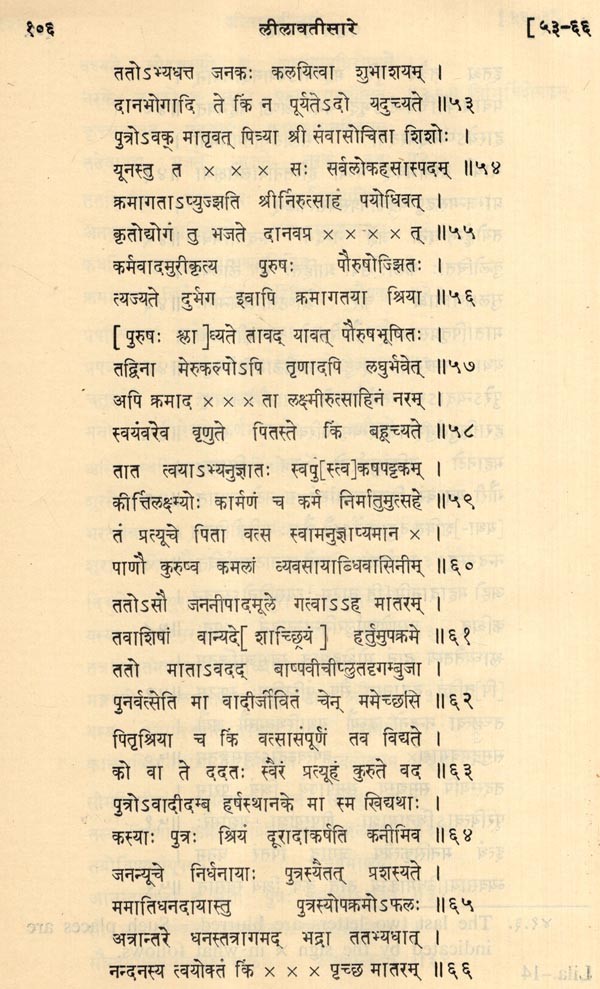 १०६ लीलावतीसारे [ ५३-६६
ततोऽभ्यधत्त जनकः कलयित्वा शुभाशयम् ।
दानभोगादि ते किं न पूर्यतेऽदो यदुच्यते ॥५३
पुत्रोऽवक् मातृवत् पित्र्या श्री संवासोचिता शिशोः ।
यूनस्तु त × × × सः सर्वलोकहसास्पदम् ॥५४
क्रमागताऽप्युज्झति श्रीर्निरुत्साहं पयोधिवत् ।
कृतोद्योगं तु भजते दानवप्र × × × × त् ॥५५
कर्मवादमुरीकृत्य पुरुषः पौरुषोज्झितः ।
त्यज्यते दुर्भग इवापि क्रमागतया श्रिया ॥५६
[ पुरुषः श्ला ]घ्यते तावद् यावत् पौरुषभूषितः ।
तद्विना मेरुकल्पोऽपि तृणादपि लघुर्भवेत् ॥५७
अपि क्रमाद × × × ता लक्ष्मीरुत्साहिनं नरम् ।
स्वयंवरेव वृणुते पितस्ते किं बहूच्यते ॥५८
तात त्वयाऽभ्यनुज्ञातः स्वपु[स्त्व]कषपट्टकम् ।
कीर्त्तिलक्ष्म्योः कार्मणं च कर्म निर्मातुमुत्सहे ॥५९
तं प्रत्यूचे पिता वत्स स्वामनुज्ञाप्यमान × ।
पाणौ कुरुष्व कमलां व्यवसायाब्धिवासिनीम् ॥६०
ततोऽसौ जननीपादमूले गत्वाऽऽह मातरम् ।
तवाशिषां वान्यदे[ शाच्छ्रियं ] हर्तुमुपक्रमे ॥६१
ततो माताऽवदद् बाष्पवीचीप्लुतदृगम्बुजा ।
पुनर्वत्सेति मा वादीर्जीवितं चेन् ममेच्छसि ॥६२
पितृश्रिया च किं वत्सासंपूर्णं तव विद्यते ।
को वा ते ददतः स्वैरं प्रत्यूहं कुरुते वद ॥६३
पुत्रोऽवादीदम्ब हर्षस्थानके मा स्म खिद्यथाः ।
कस्याः पुत्रः श्रियं दूरादाकर्षति कनीमिव ॥६४
जनन्यूचे निर्धनायाः पुत्रस्यैतत् प्रशस्यते ।
ममातिधनदायास्तु पुत्रस्योपक्रमोऽफलः ॥६५
अत्रान्तरे धनस्तत्रागमद् भद्रा ततभ्यधात् ।
नन्दनस्य त्वयोक्तं किं × × × पृच्छ मातरम् ॥६६